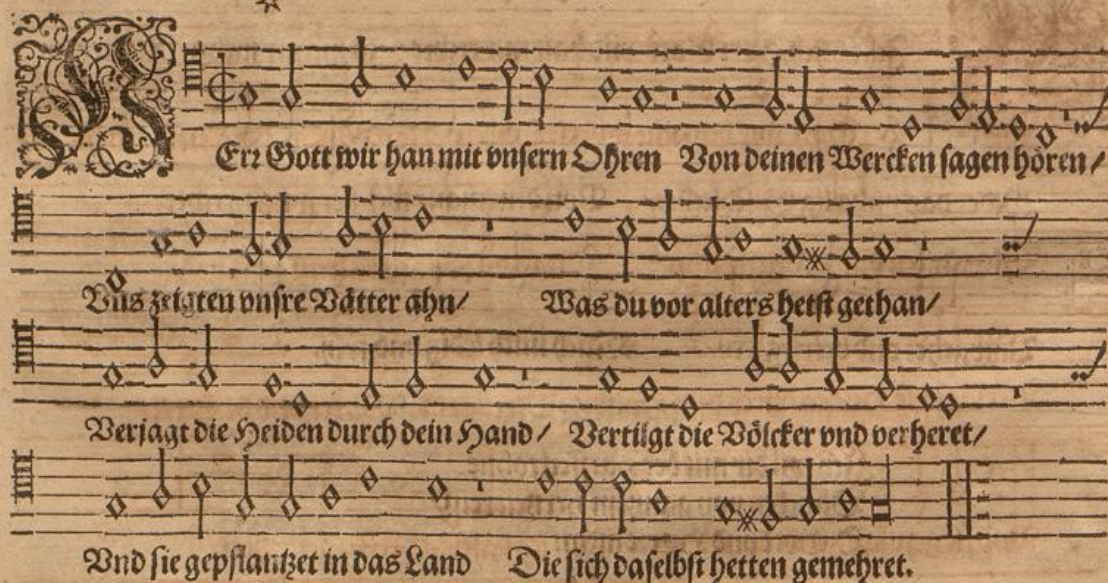 HErr Gott wir han mit vnsern Ohren Von deinen Wercken sagen hören /
Vns zeigten vnsre Vätter ahn / Was du vor alters hetst gethan /
Verjagt die Heiden durch dein Hand / Vertilgt die Völcker vnd verheret /
Vnd sie gepflantzet in das Land Die sich daselbst hetten gemehret.